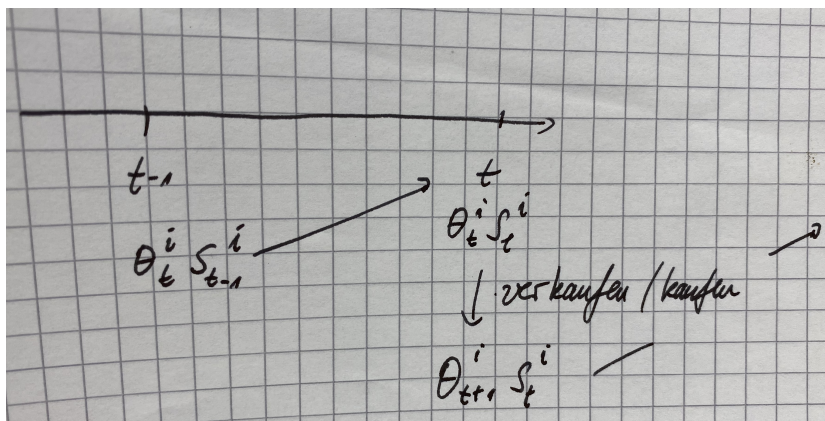 t-1 t
θ_t^i S_{t-1}^i θ_t^i S_t^i
↓ verkaufen/kaufen
θ_{t+1}^i S_t^i